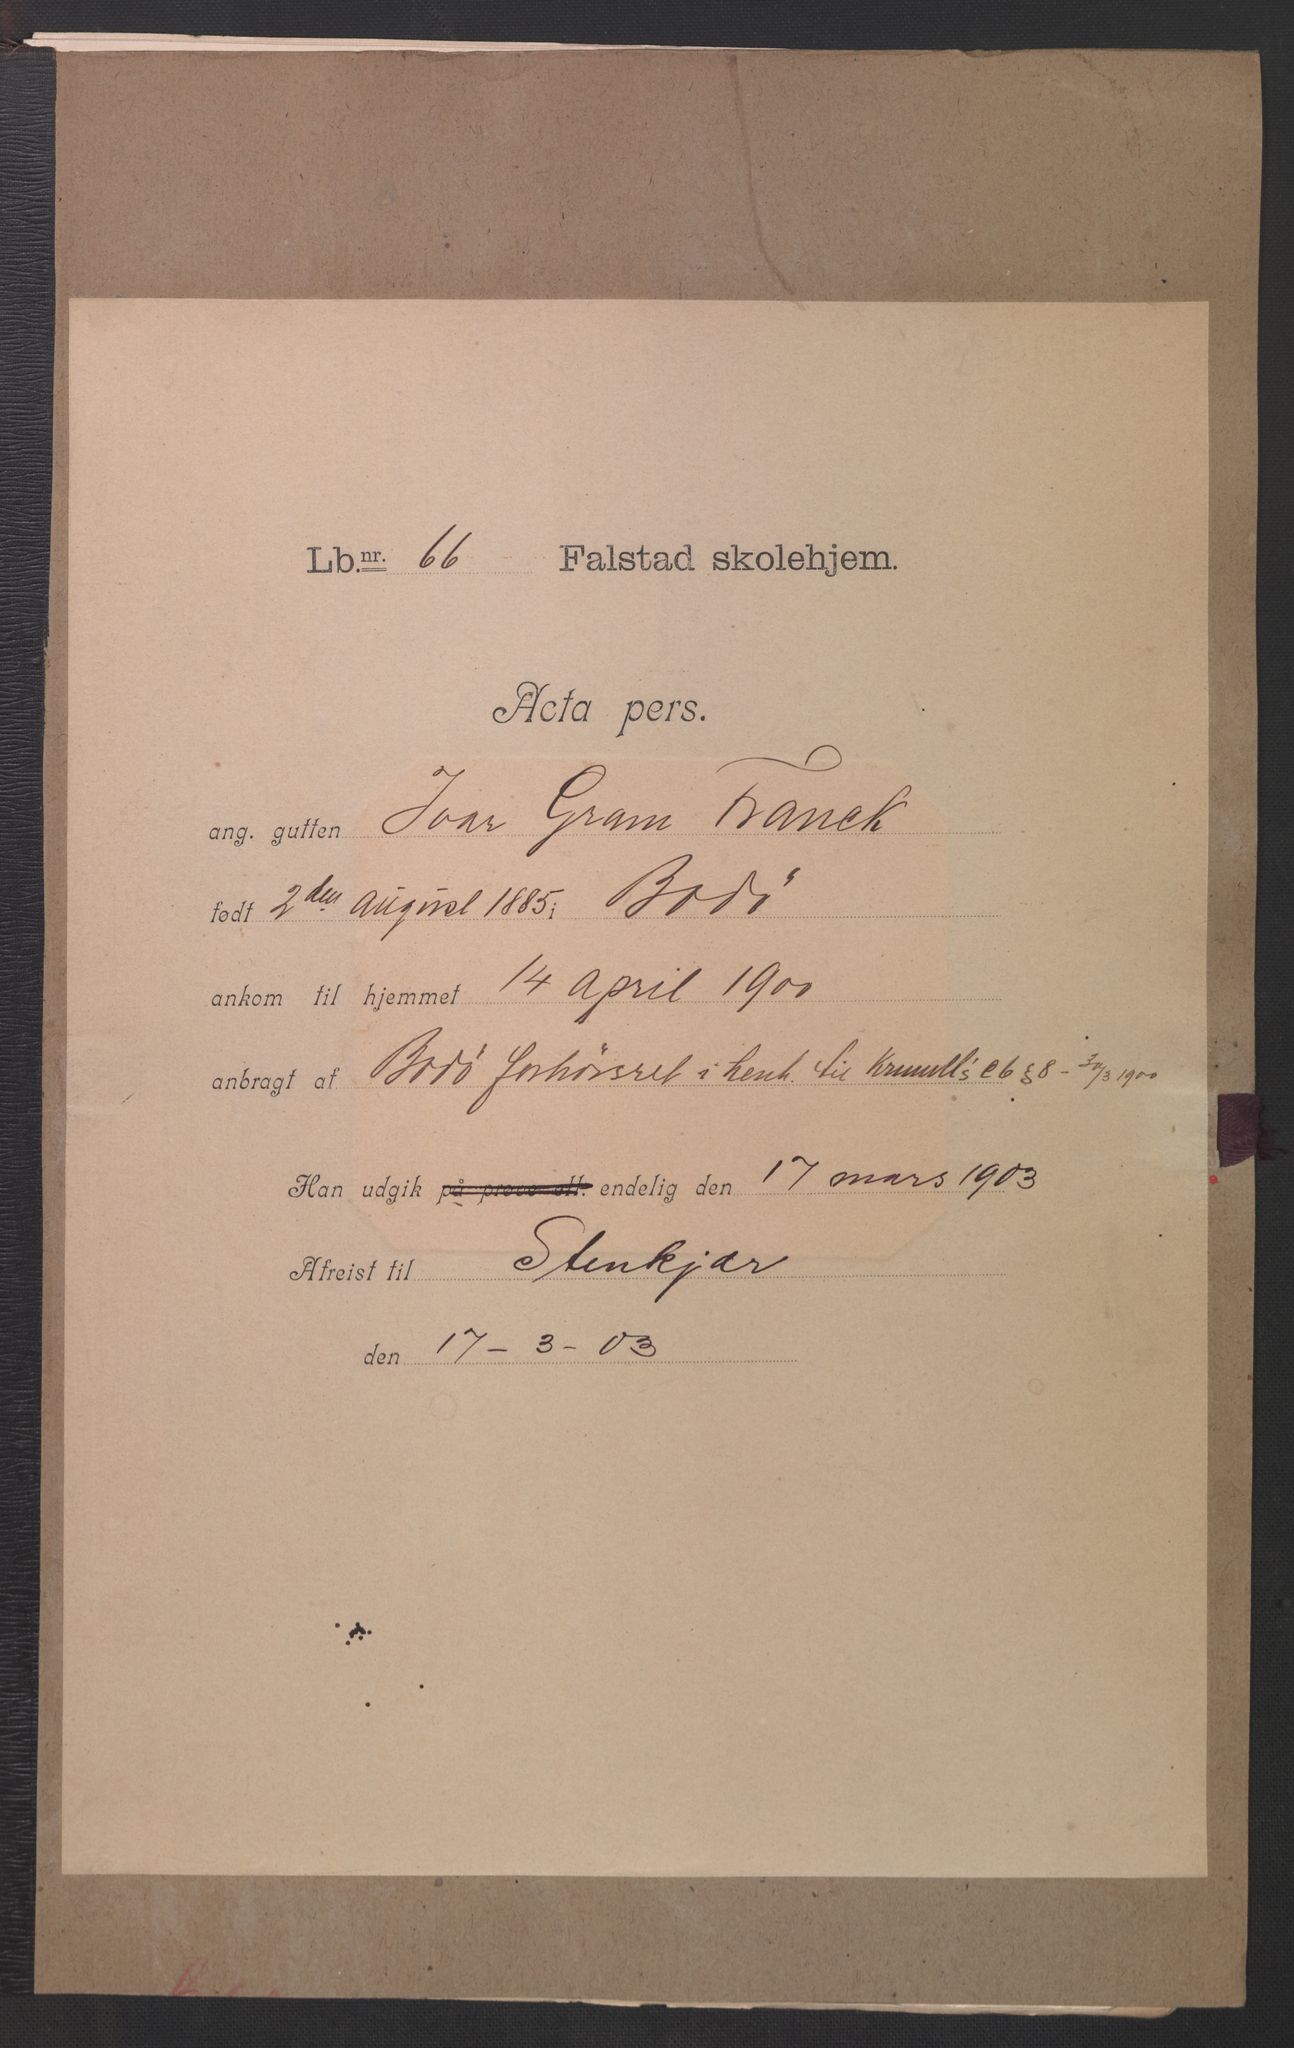 Lb.nr. 66 Falstad skolehjem.
Acta pers.
ang. gutten Ivar Gram Franck
født 2den august 1885 i Bodö
ankom til hjemmet 14 april 1900
anbragt af Bodö forhörsret i henh. til Krimll's c 6 § 8 - 30/3 1900
Han udgik på prøve ell. endelig den 17 mars 1903
Afreist til Stenkjær
den 17 - 3 - 03